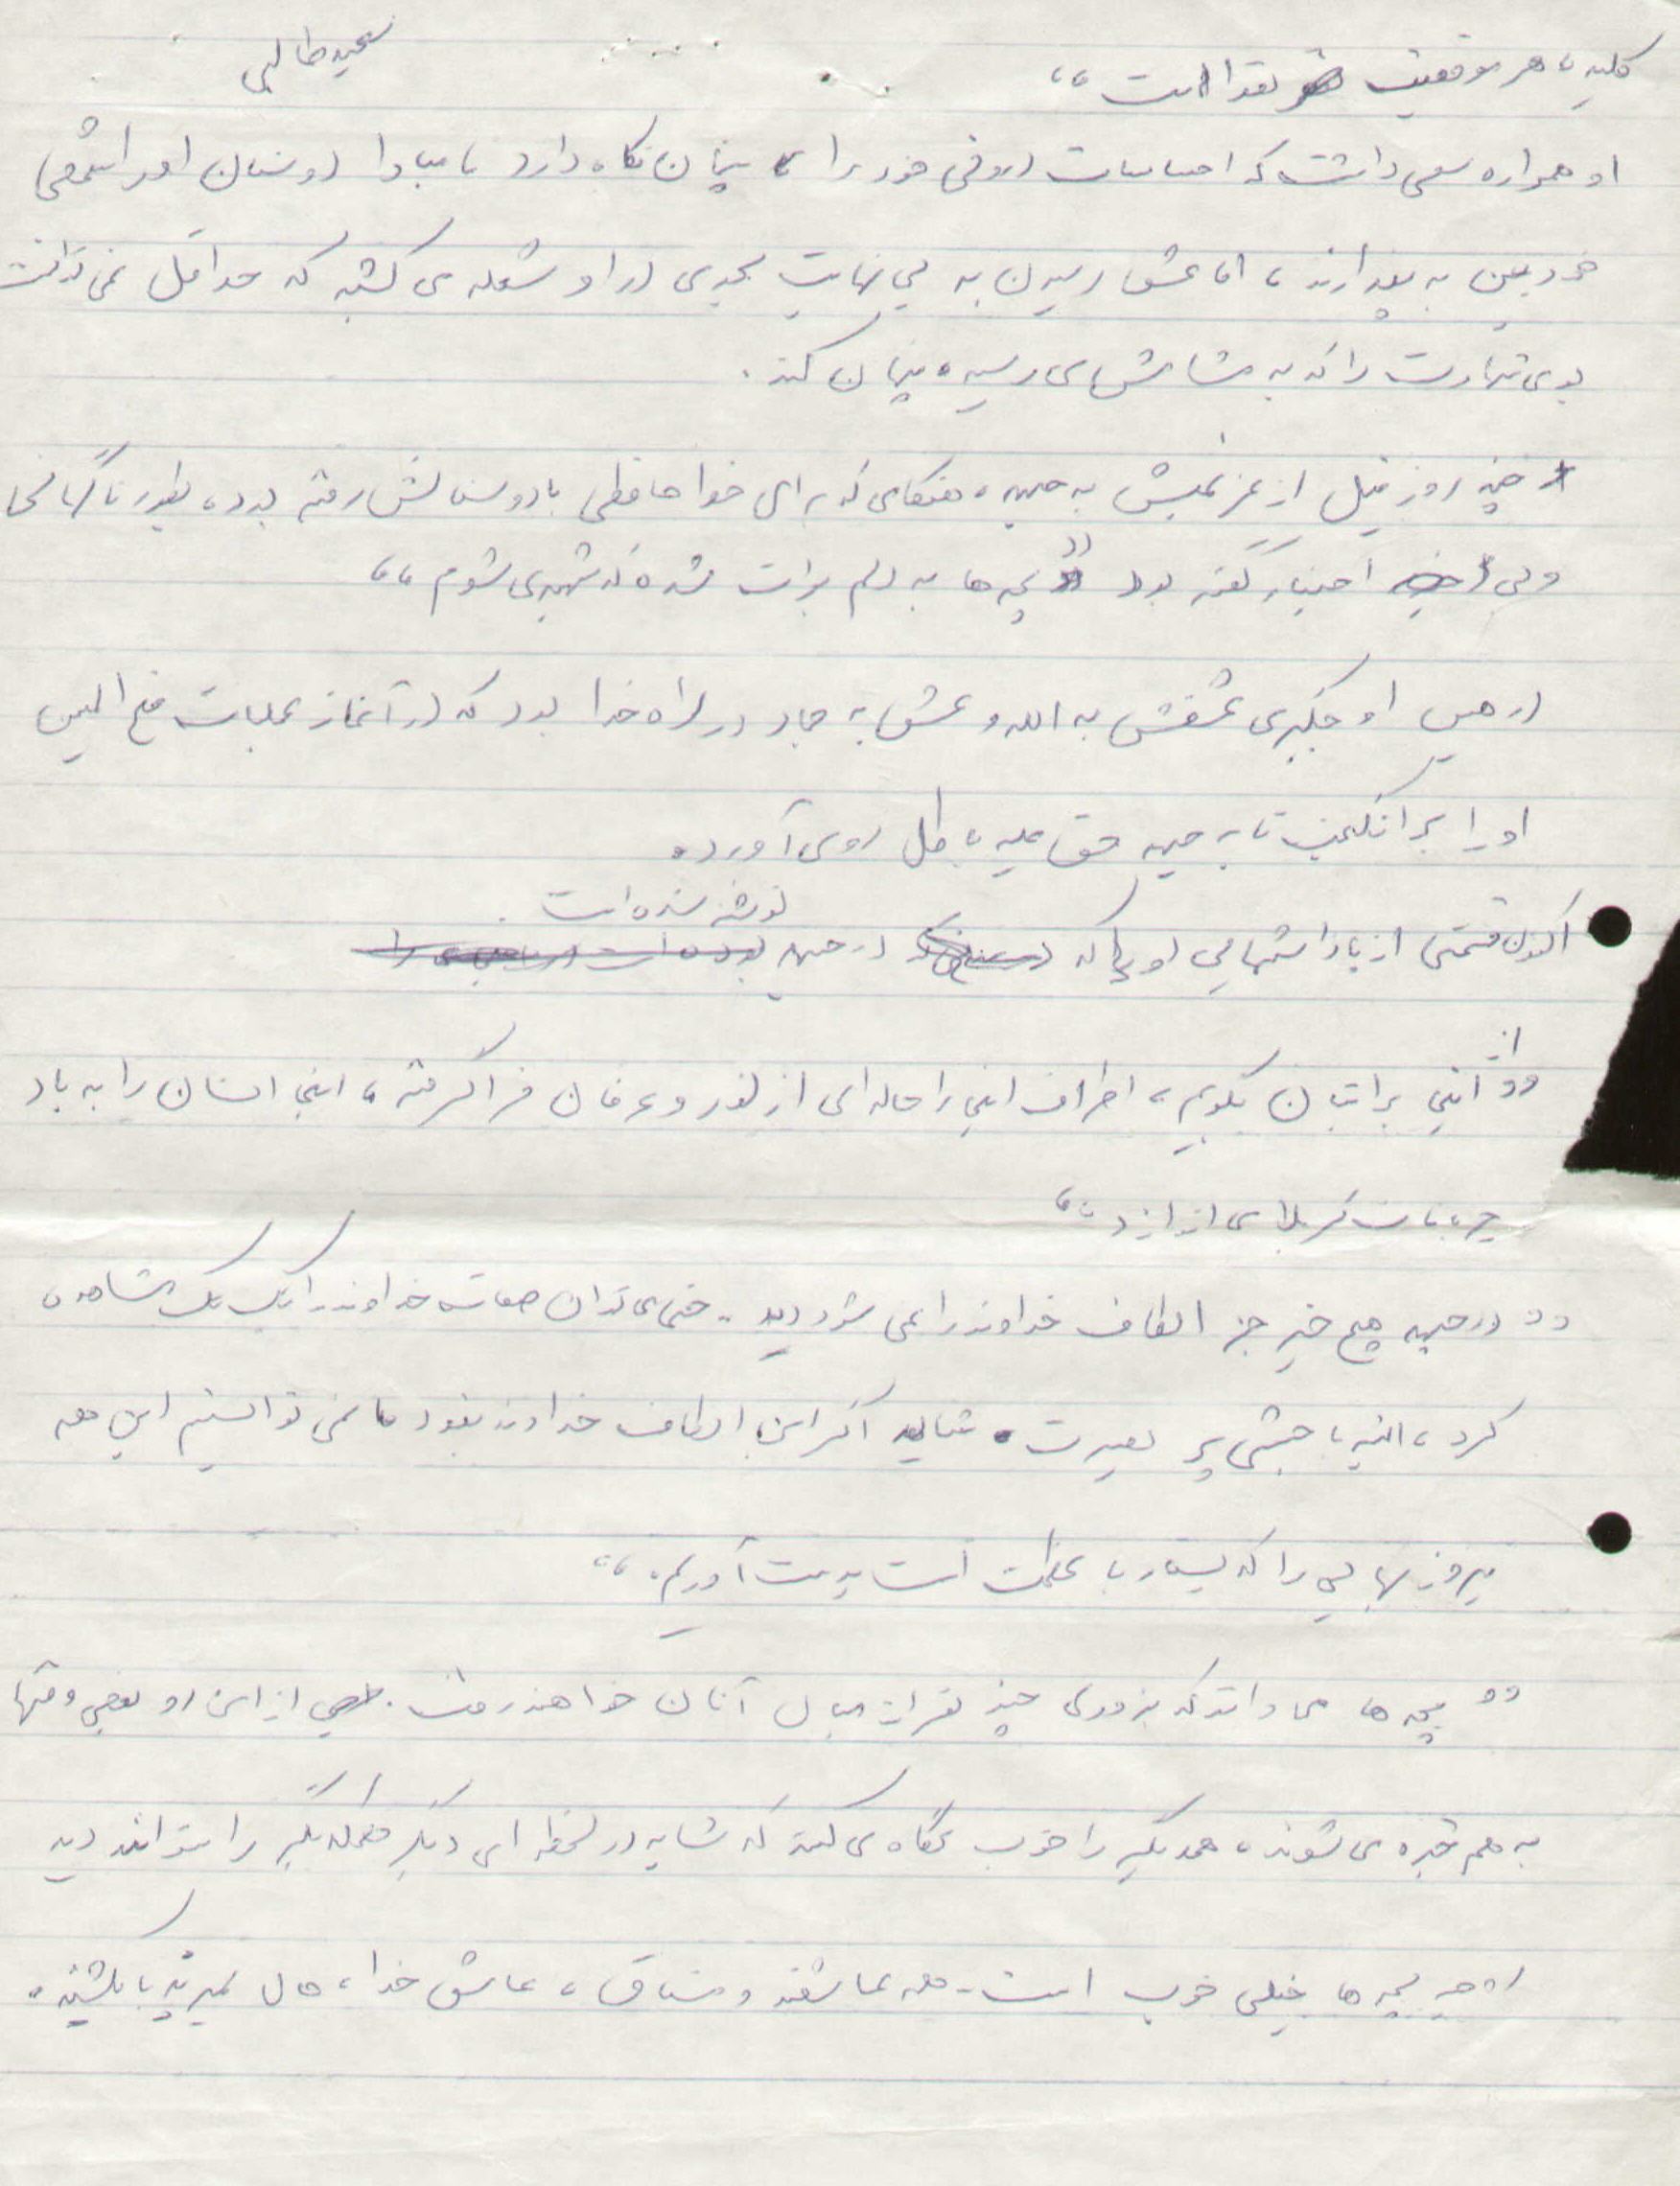 سعید طالبی
کلید هر موفقیت تقوا است ،،
او همواره سعی داشت که احساسات درونی خود را پنهان نگاه دارد تا مبادا دوستان او را شخصی
خودبین به پندارند، اما عشق رسیدن به بی نهایت بحدی در او شعله می کشید که حداقل نمی توانست
بوی شهادت را که به مشامش می رسید، پنهان کند.
چند روز قبل از عزیمتش به جبهه، هنگامی که برای خداحافظی با دوستانش رفته بود، بطور ناگهانی
و بی اختیار گفته بود (( بچه ها به دلم برات شده که شهید می شوم ،،
در همین اوجگیری عشقش به الله و عشق به جهاد در راه خدا بود که در آغاز عملیات فتح المبین
او را برانگیخت تا به جبهه حق علیه باطل روی آورد.
نوشته شده است.
اکنون قسمتی از یادداشتهایی او که در جبهه
،، از اینجا برایتان بگویم، اطراف اینجا را هاله ای از نور و عرفان فرا گرفته، اینجا انسان را به یاد
کربلا می اندازد ،،
،، در جبهه هیچ چیز جز الطاف خداوند را نمی شود دید. حتی می توان صفات خداوند را یک یک مشاهده
کرد، البته با چشمی پر بصیرت. شاید اگر این الطاف خداوند نبود ما نمی توانستیم این همه
پیروزیهایی را که بسیار با عظمت است بدست آوریم. ،،
،، بچه ها می دانند که بزودی چند نفر از میان آنان خواهند رفت. از این رو بعضی وقتها
به هم خیره می شوند، همدیگر را خوب نگاه می کنند که شاید در لحظه ای دیگر همدیگر را نتوانند دید
روحیه بچه ها خیلی خوب است. همه عاشقند و مشتاق، عاشق خدا، حال بمیرند یا بکشند.